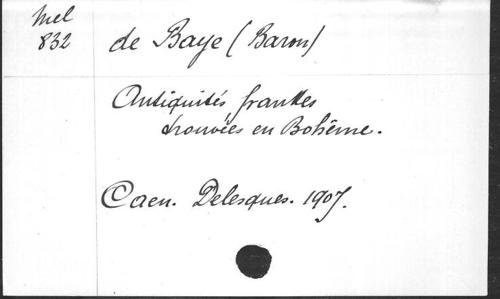 Mel
832
de Baye (Baron)
Antiquités frankes
trouvées en Bohême.
Caen. Delesques. 1907.